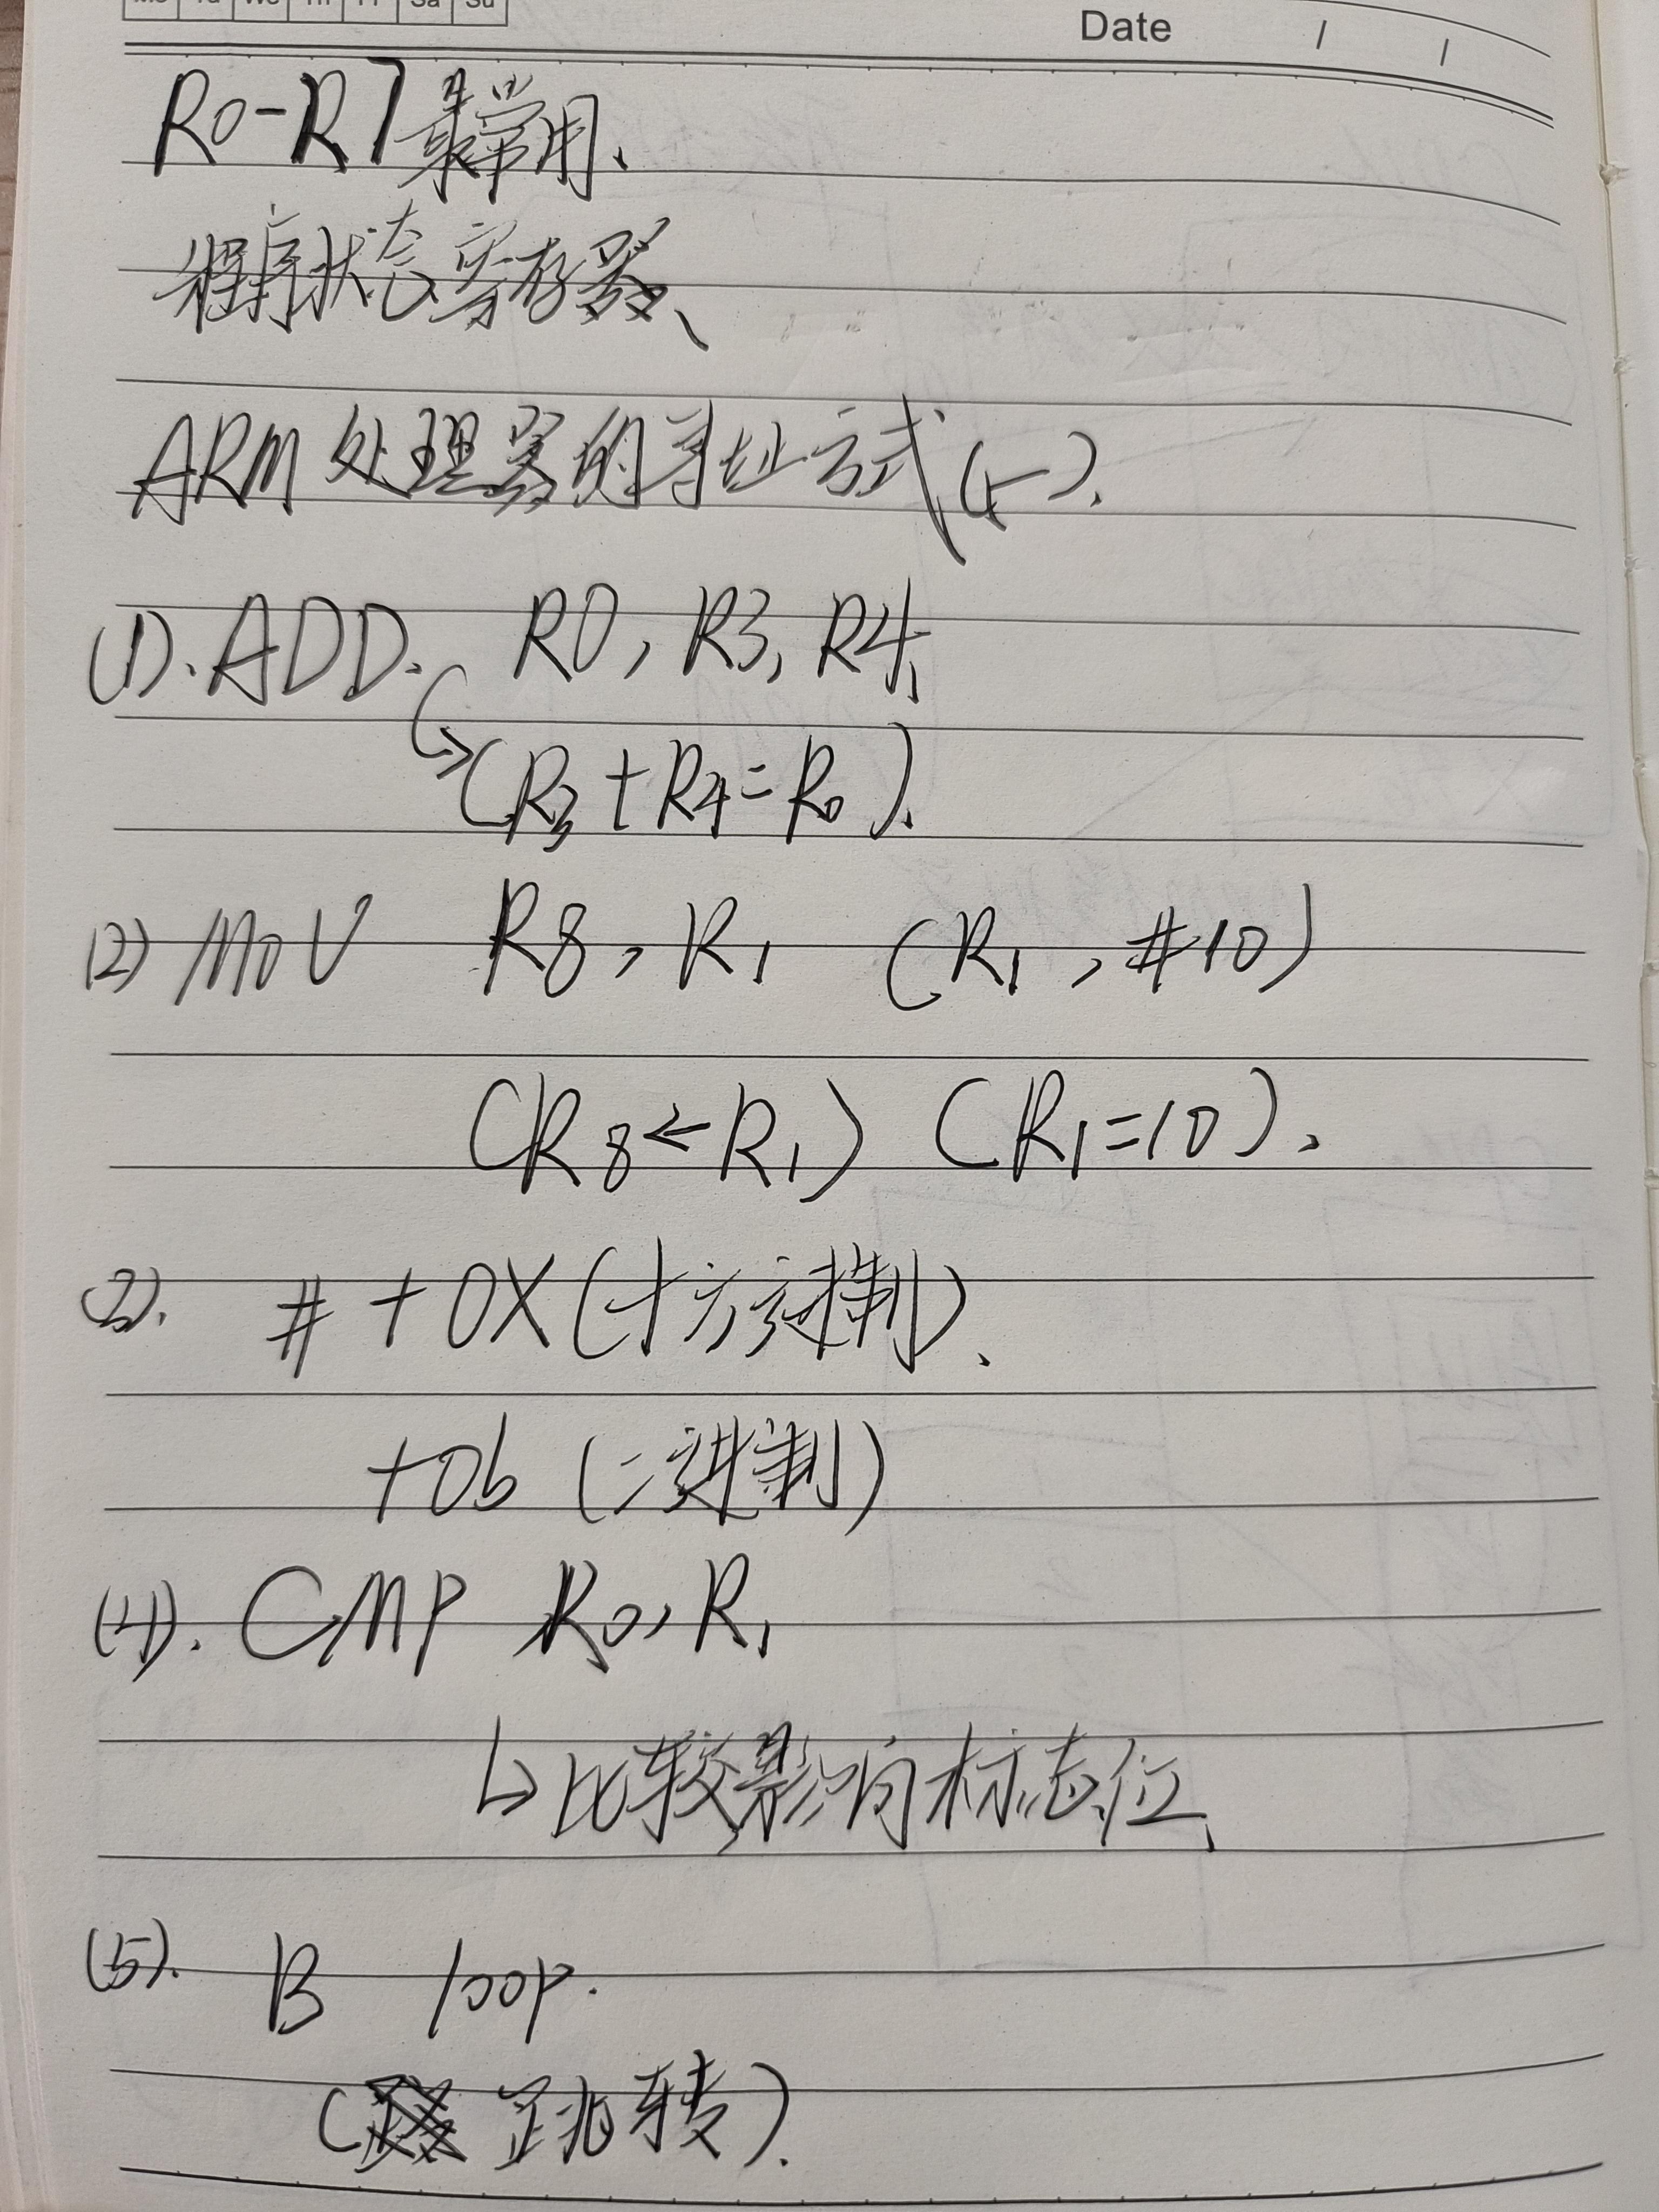 Mo Tu We Th Fr Sa Su
Date / /
R0-R7最常用、
程序状态寄存器、
ARM处理器的寻址方式(一).
(1). ADD. R0, R3, R4,
(R3+R4=R0).
(2) MOV R8, R1 (R1, #10)
(R8←R1) (R1=10).
(3). # +0X(十六进制)、
+0b (二进制)
(4). CMP R0, R1
↳比较影响标志位、
(5). B loop.
(跳转).